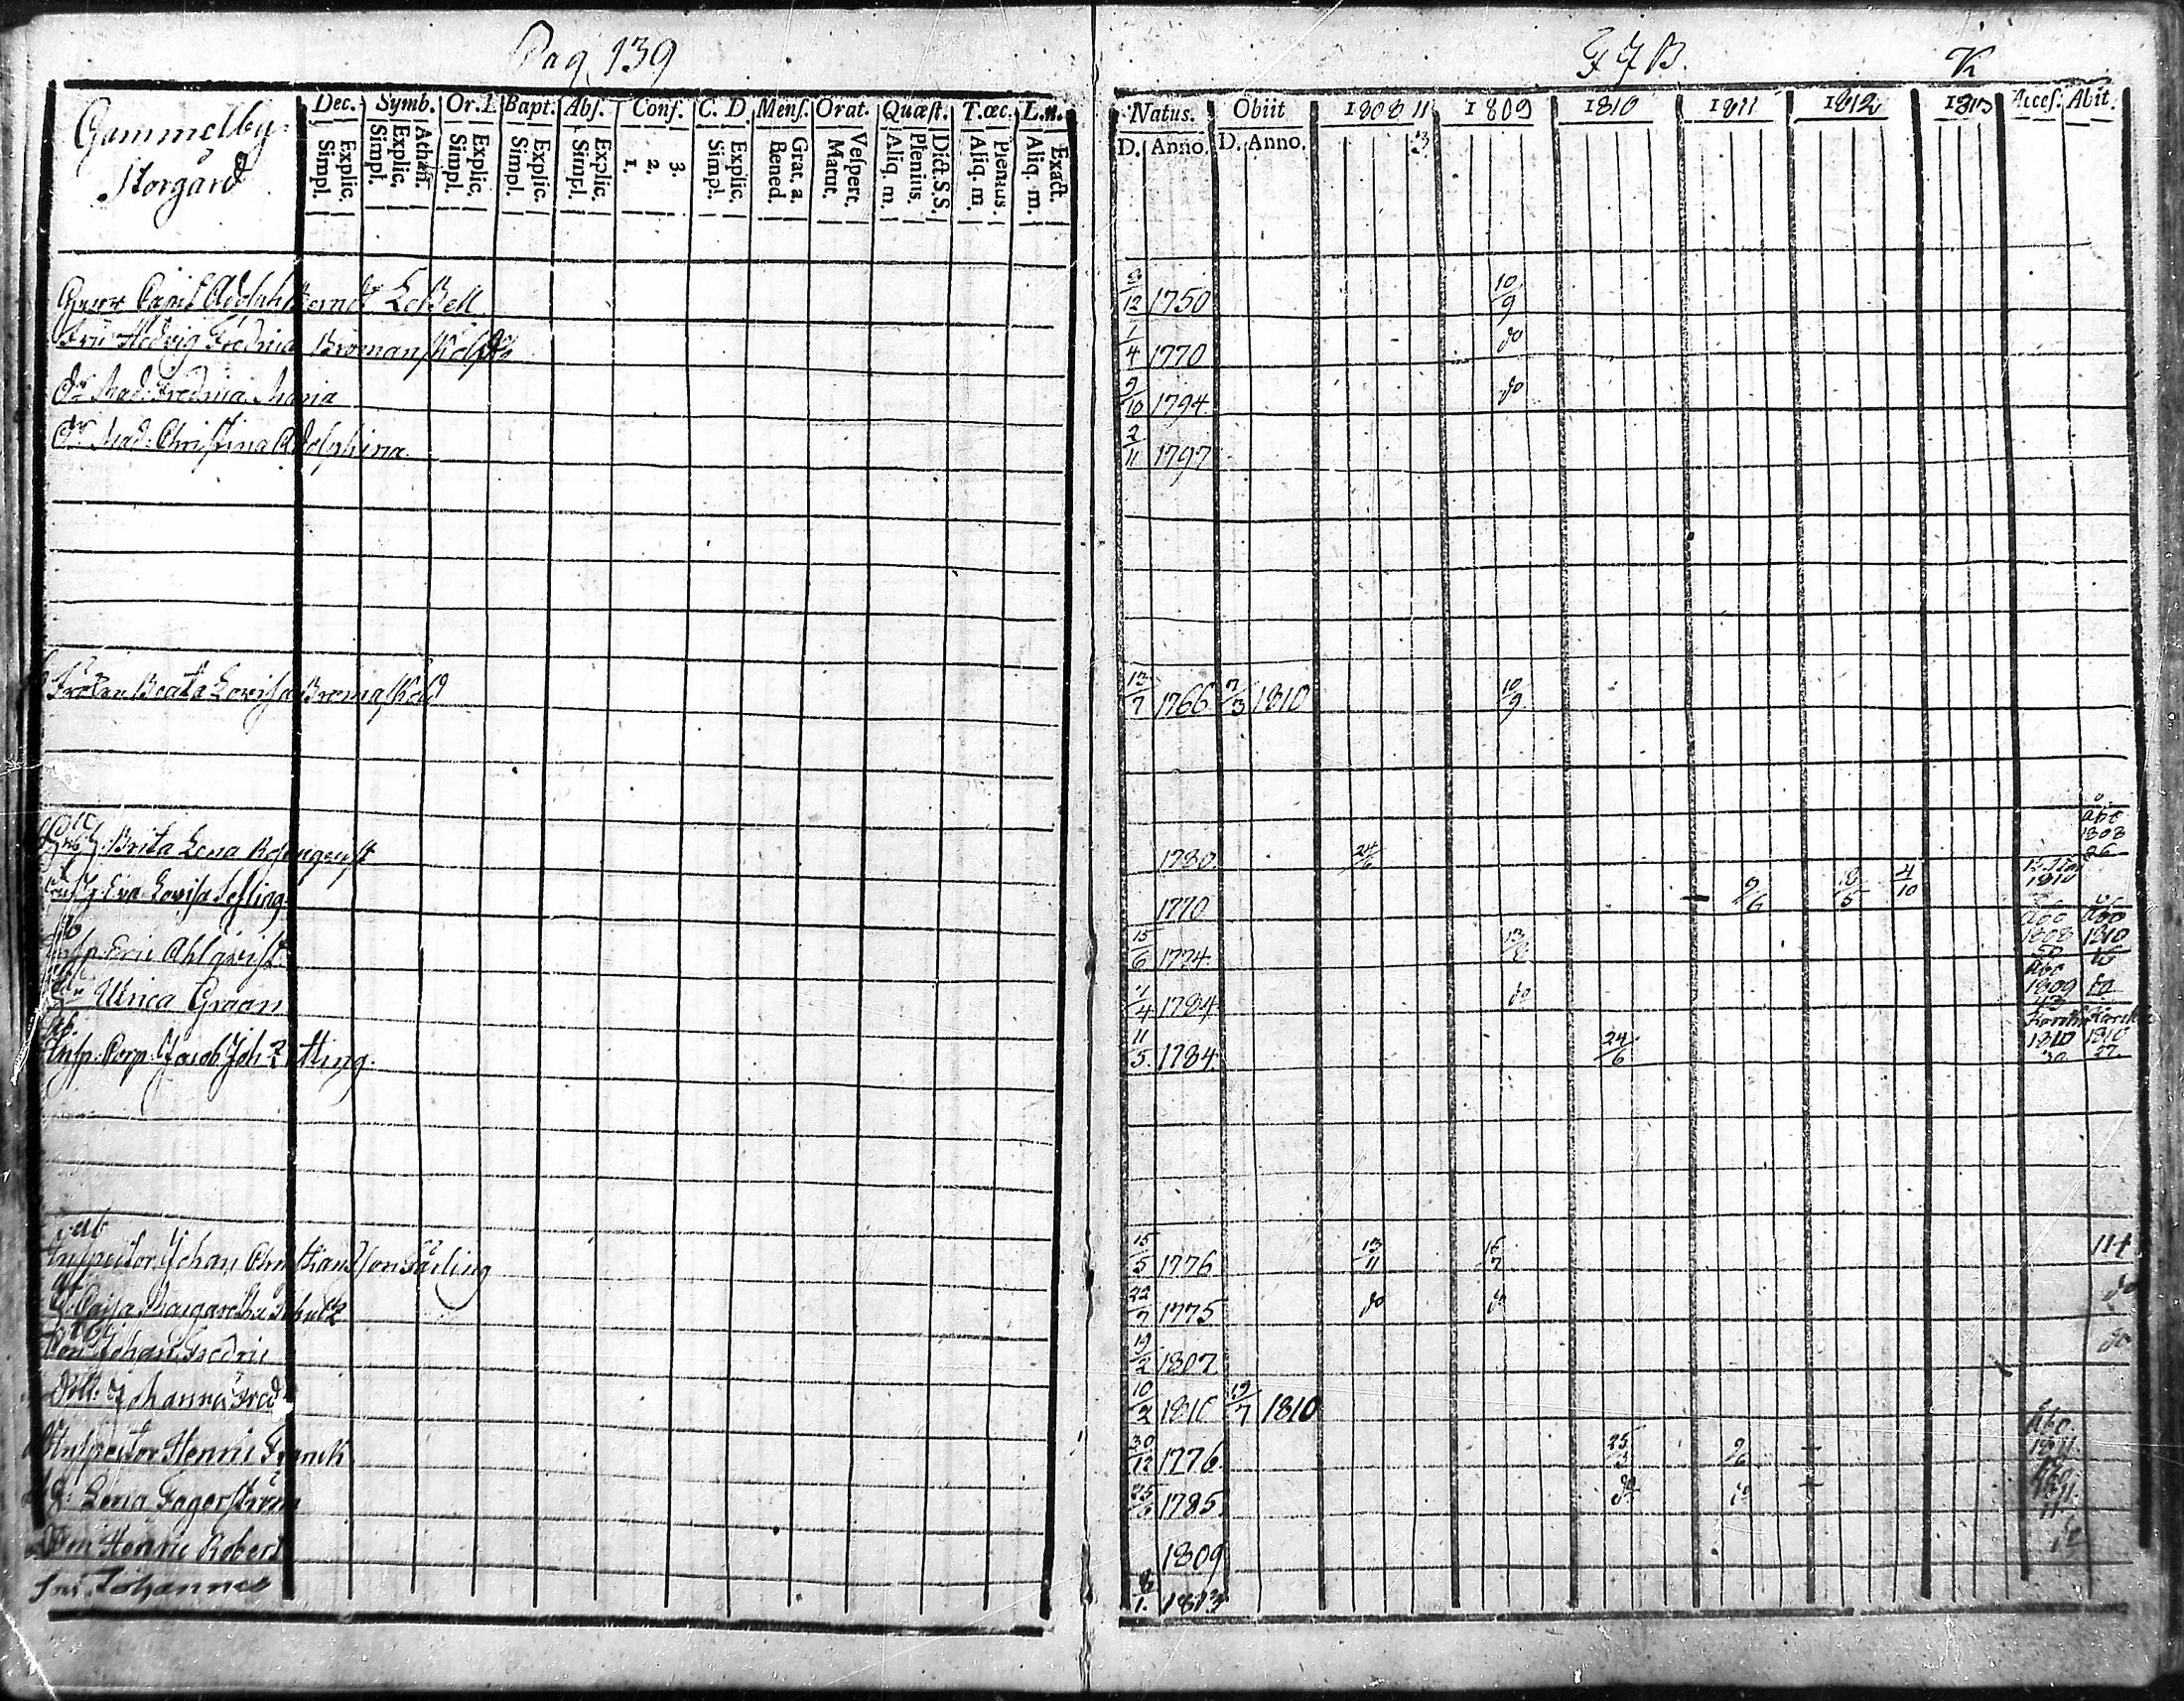 Pag 139
F J B. K
Gammelby
Storgård
Dec. Symb. Or. I. Bapt. Abſ. Conf. C. D Menſ. Orat. Quæſt. T. œc. L. n.
Simpl. Explic. Simpl. Explic. Athan. Simpl. Explic. Simpl. Explic. Simpl. Explic. 1. 2. 3. Simpl. Explic. Bened. Grat. a. Matut. Veſpert. Aliq. m. Plenius. Dict. S. S. Aliq. m. Plenius. Aliq. m. Exact.
Natus. Obiit 1808 11/13 1809 1810 1811 1812 1813 Acceſ. Abit.
D. Anno. D. Anno.
Capit Adolph Bernd LeBell 9/12 1750 10/9
Fru Hedvig Fredrica Broman 1/4 1770 do
Mad: Fredrica Maria 9/10 1794 do
Mad: Christina Adolphina 2/11 1797
Fröken Beata Lovisa 13/7 1766 7/3 1810 10/9
Brita Lena 1780 24/6 Åbo 1808 26
Eva Lovisa 1770 9/6 18/5 4/10 1810
Insp Eric Ahlqvist 15/6 1774 Åbo 1808 50 Åbo 1810 16
Ulrica Graan 7/4 1784 do Åbo 1809 43 do
Insp: Corp: Jacob Joh 11/5 1784 24/6 1810 30 1810 27
ab
Inspector Johan Christian 15/5 1776 13/11 16/7 114
Cajsa Margaretha Schultz 22/7 1775 do do do
Son Johan Fredric 19/2 1807 do
Dott: Johanna Fred 10/2 1810 19/7 1810
Inspector Henric Franck 30/12 1776 25/3 9/6 Åbo 1811
Lena Fagerström 25/6 1785 do do Åbo 1811 11
Son Henric Robert 1809
Son Johannes 8/1 1813